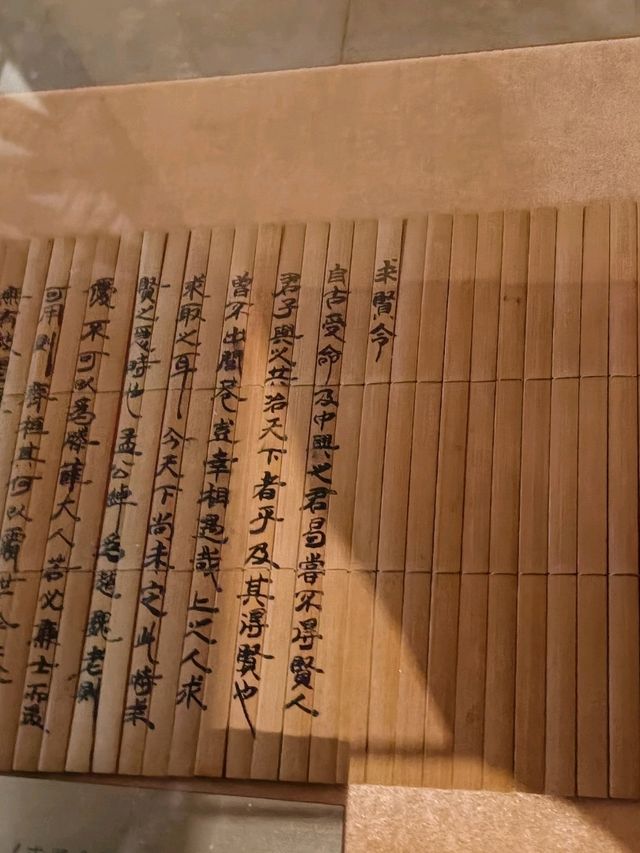 求賢令
自古受命及中興之君曷嘗不得賢人
君子與之共治天下者乎及其得賢也
曾不出閭巷豈幸相遇哉上之人求
求取之耳今天下尚未定此特求
賢之急時也孟公綽爲趙魏老則
優不可以爲滕薛大人若必廉士而後
可用則齊桓其何以霸世今天